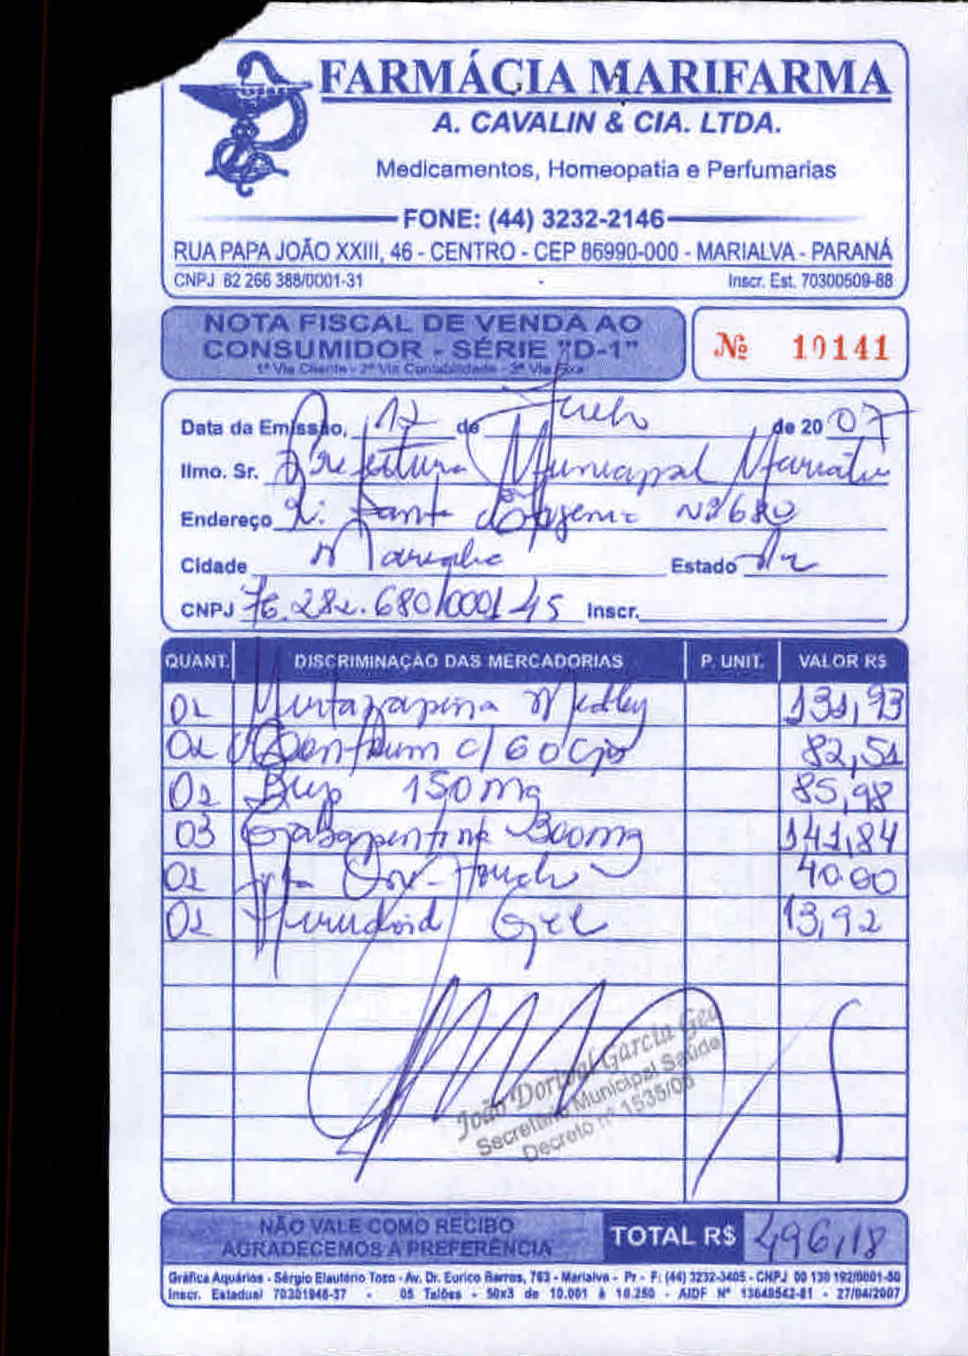 FARMÁCIA MARIFARMA
A. CAVALIN & CIA. LTDA.
Medicamentos, Homeopatia e Perfumarias
FONE: (44) 3232-2146
RUA PAPA JOÃO XXIII, 46 - CENTRO - CEP 86990-000 - MARIALVA - PARANÁ
CNPJ 82 266 388/0001-31 Inscr. Est. 70300509-88
NOTA FISCAL DE VENDA AO
CONSUMIDOR - SÉRIE "D-1"
1ª Via Cliente - 2ª Via Contabilidade - 3ª Via Fixa
Nº 10141
Data da Emissão, 17 de Julho de 2007
Ilmo. Sr. Prefeitura Municipal Marialva
Endereço R. Santa Efigenia Nº 680
Cidade Marialva Estado Pr
CNPJ 76.282.680/0001-45 Inscr.
QUANT. DISCRIMINAÇÃO DAS MERCADORIAS P. UNIT. VALOR R$
01 Mirtazapina Medley 131,93
01 Centrum c/ 60 cps 82,51
02 Bup 150 mg 85,98
03 Gabapentina 300mg 141,84
01 One-Touch 40,00
01 Hirudoid Gel 13,92
João Dorival Garcia Gea
Secretário Municipal Saúde
Decreto nº 1535/05
NÃO VALE COMO RECIBO
AGRADECEMOS A PREFERÊNCIA
TOTAL R$ 496,18
Gráfica Aquários - Sérgio Elautério Tozo - Av. Dr. Eurico Barros, 763 - Marialva - Pr - F: (44) 3232-3405 - CNPJ 00 130 192/0001-50
Inscr. Estadual 70301946-37 - 05 Talões - 50x3 de 10.001 à 10.250 - AIDF Nº 13648542-81 - 27/04/2007